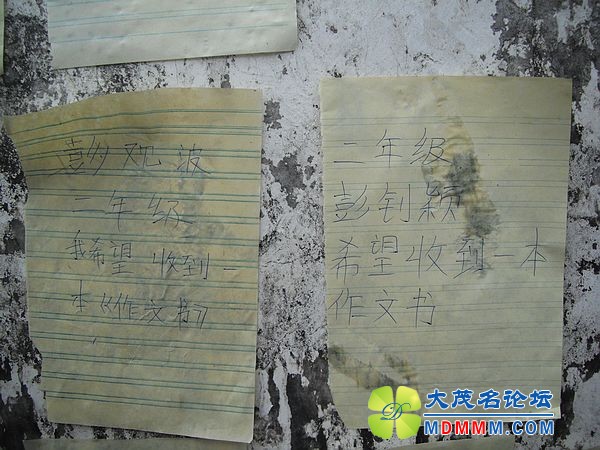 彭观波
二年级
我希望收到一
本《作文书》
二年级
彭钊颖
希望收到一本
作文书
大茂名论坛
MDMMM.COM